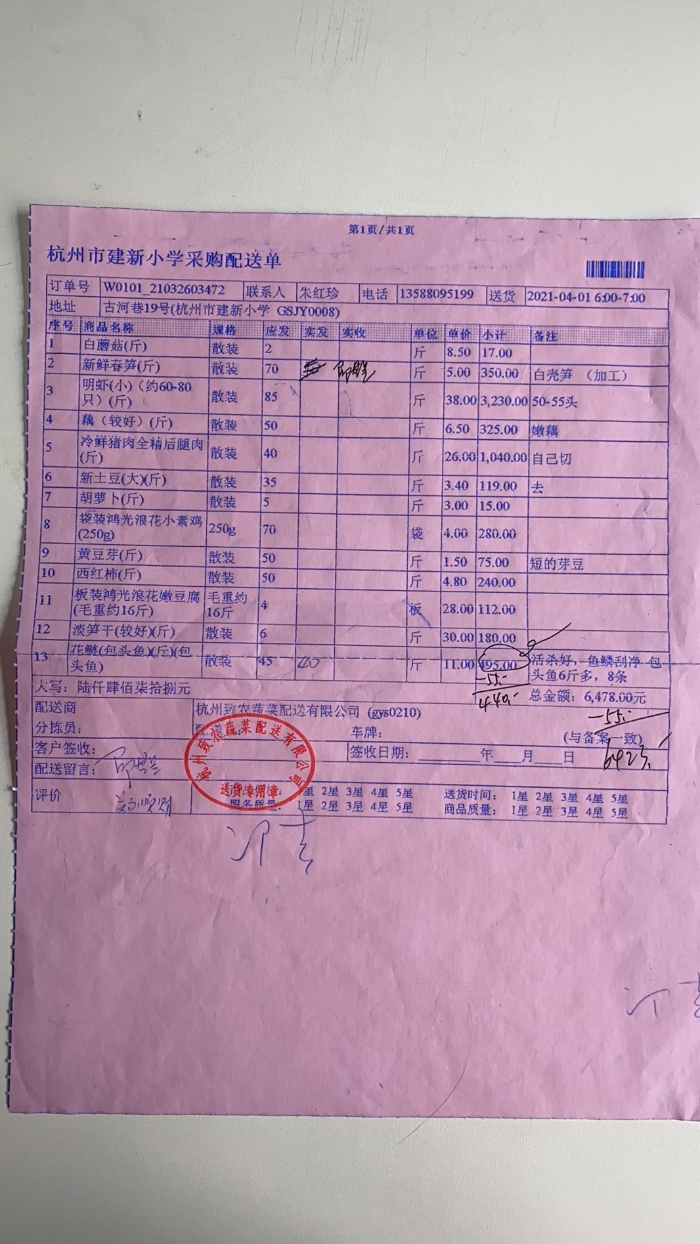 第1页/共1页
杭州市建新小学采购配送单
订单号 W0101_21032603472 联系人 朱红珍 电话 13588095199 送货 2021-04-01 6:00-7:00
地址 古河巷19号(杭州市建新小学 GSJY0008)
序号 商品名称 规格 应发 实发 实收 单位 单价 小计 备注
1 白蘑菇(斤) 散装 2 斤 8.50 17.00
2 新鲜春笋(斤) 散装 70 斤 5.00 350.00 白壳笋 (加工)
3 明虾(小)(约60-80只)(斤) 散装 85 斤 38.00 3,230.00 50-55头
4 藕(较好)(斤) 散装 50 斤 6.50 325.00 嫩藕
5 冷鲜猪肉全精后腿肉(斤) 散装 40 斤 26.00 1,040.00 自己切
6 新土豆(大)(斤) 散装 35 斤 3.40 119.00 去
7 胡萝卜(斤) 散装 5 斤 3.00 15.00
8 袋装鸿光浪花小素鸡(250g) 250g 70 袋 4.00 280.00
9 黄豆芽(斤) 散装 50 斤 1.50 75.00 短的芽豆
10 西红柿(斤) 散装 50 斤 4.80 240.00
11 板装鸿光浪花嫩豆腐(毛重约16斤) 毛重约16斤 4 板 28.00 112.00
12 淡笋干(较好)(斤) 散装 6 斤 30.00 180.00
13 花鲢(包头鱼)(斤)(包头鱼) 散装 45 斤 11.00 495.00 活杀好,鱼鳞刮净 包头鱼6斤多,8条
-55-
440-
大写:陆仟肆佰柒拾捌元 总金额:6,478.00元
-55-
配送商 杭州致农蔬菜配送有限公司 (gys0210)
分拣员: 车牌: (与备案一致)
6423
客户签收: 签收日期: 年 月 日
配送留言:
杭州致农蔬菜配送有限公司
送货专用章
评价 星 2星 3星 4星 5星 送货时间: 1星 2星 3星 4星 5星
服务质量: 1星 2星 3星 4星 5星 商品质量: 1星 2星 3星 4星 5星